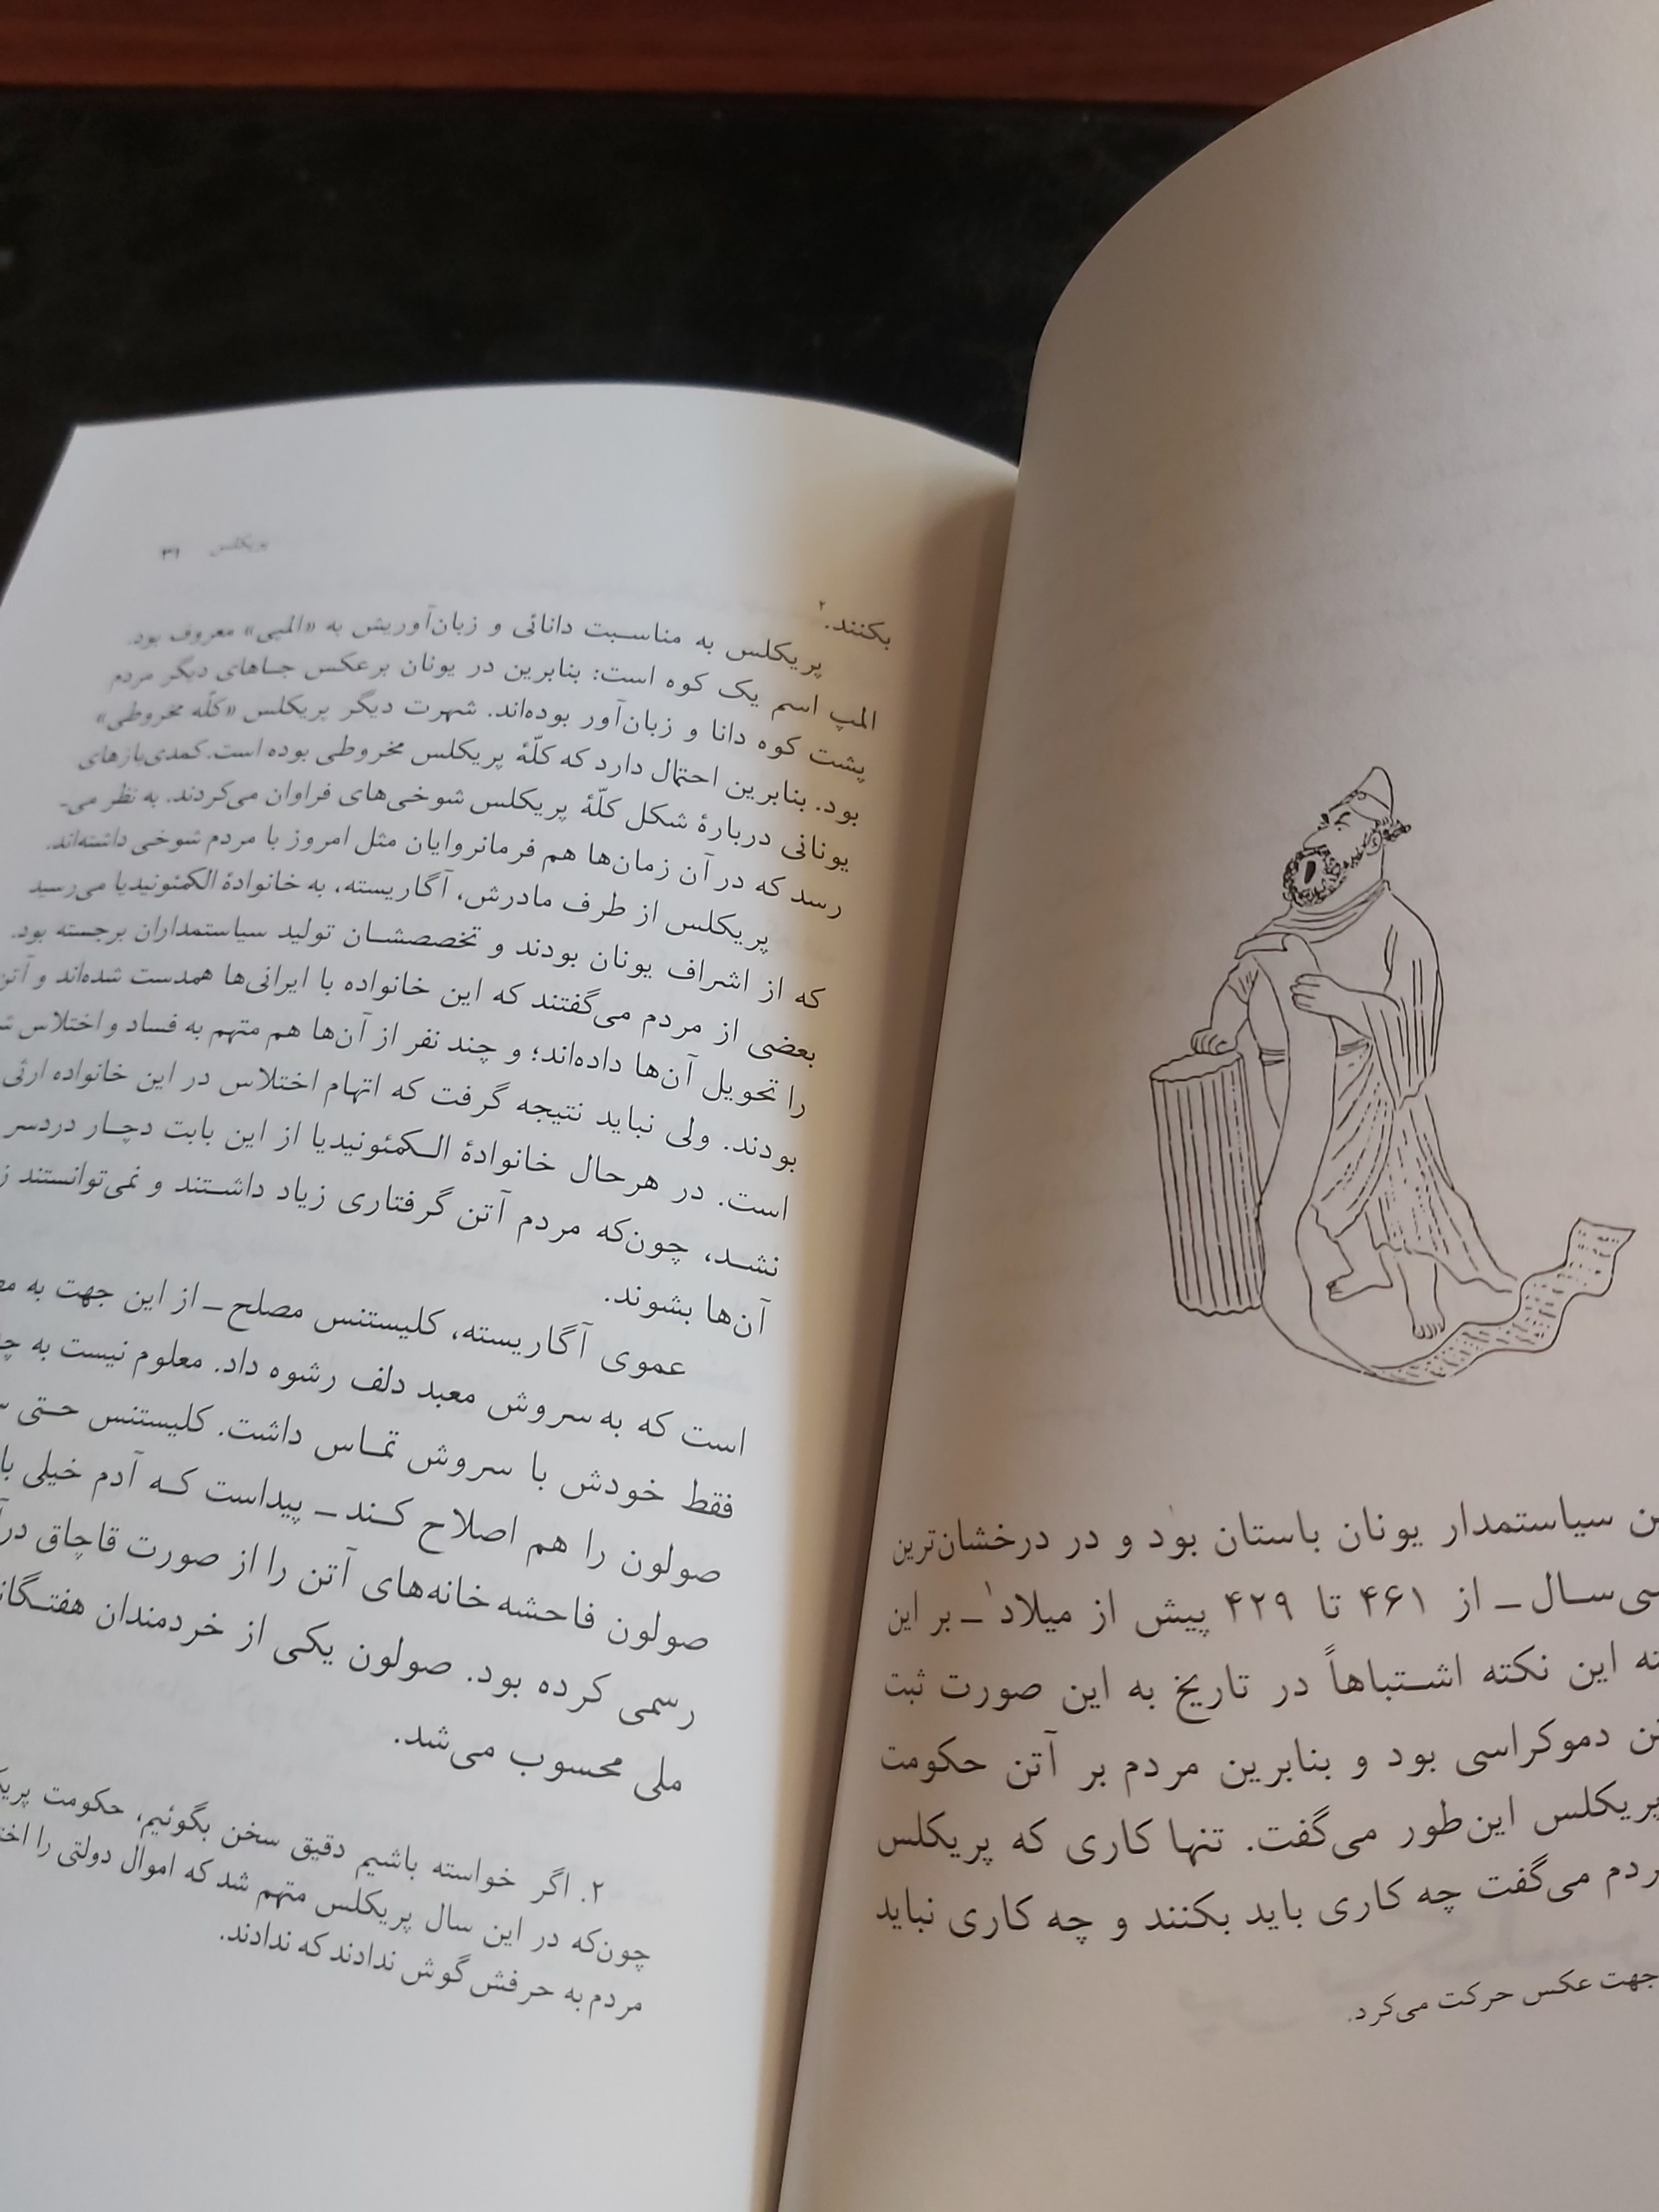 سیاستمدار یونان باستان بود و در درخشان‌ترین
سی‌سال ـ از ۴۶۱ تا ۴۲۹ پیش از میلاد۱ ـ بر این
این نکته اشتباهاً در تاریخ به این صورت ثبت
دموکراسی بود و بنابرین مردم بر آتن حکومت
پریکلس این‌طور می‌گفت. تنها کاری که پریکلس
می‌گفت چه کاری باید بکنند و چه کاری نباید
جهت عکس حرکت می‌کرد.
پریکلس ۳۱
بکنند.۲
پریکلس به مناسبت دانائی و زبان‌آوریش به «المپی» معروف بود.
المپ اسم یک کوه است: بنابرین در یونان برعکس جاهای دیگر مردم
پشت کوه دانا و زبان‌آور بوده‌اند. شهرت دیگر پریکلس «کلّه مخروطی»
بود. بنابرین احتمال دارد که کلّهٔ پریکلس مخروطی بوده است. کمدی‌بازهای
یونانی دربارهٔ شکل کلّهٔ پریکلس شوخی‌های فراوان می‌کردند. به نظر می‌ـ
رسد که در آن زمان‌ها هم فرمانروایان مثل امروز با مردم شوخی داشته‌اند.
پریکلس از طرف مادرش، آگاریسته، به خانوادهٔ الکمئونیدیا می‌رسید
که از اشراف یونان بودند و تخصصشان تولید سیاستمداران برجسته بود.
بعضی از مردم می‌گفتند که این خانواده با ایرانی‌ها همدست شده‌اند و آتن
را تحویل آن‌ها داده‌اند؛ و چند نفر از آن‌ها هم متهم به فساد و اختلاس
بودند. ولی نباید نتیجه گرفت که اتهام اختلاس در این خانواده ارثی
است. در هرحال خانوادهٔ الکمئونیدیا از این بابت دچار دردسر
نشد، چون‌که مردم آتن گرفتاری زیاد داشتند و نمی‌توانستند
آن‌ها بشوند.
عموی آگاریسته، کلیستنس مصلح ـ از این جهت به
است که به سروش معبد دلف رشوه داد. معلوم نیست به
فقط خودش با سروش تماس داشت. کلیستنس حتی
صولون را هم اصلاح کـند ـ پیداست که آدم خیلی
صولون فاحشه خانه‌های آتن را از صورت قاچاق
رسمی کرده بود. صولون یکی از خردمندان
ملی محسوب می‌شد.
۲. اگر خواسته باشیم دقیق سخن بگوئیم، حکومت
چون‌که در این سال پریکلس متهم شد که اموال دولتی را
مردم به حرفش گوش ندادند که ندادند.